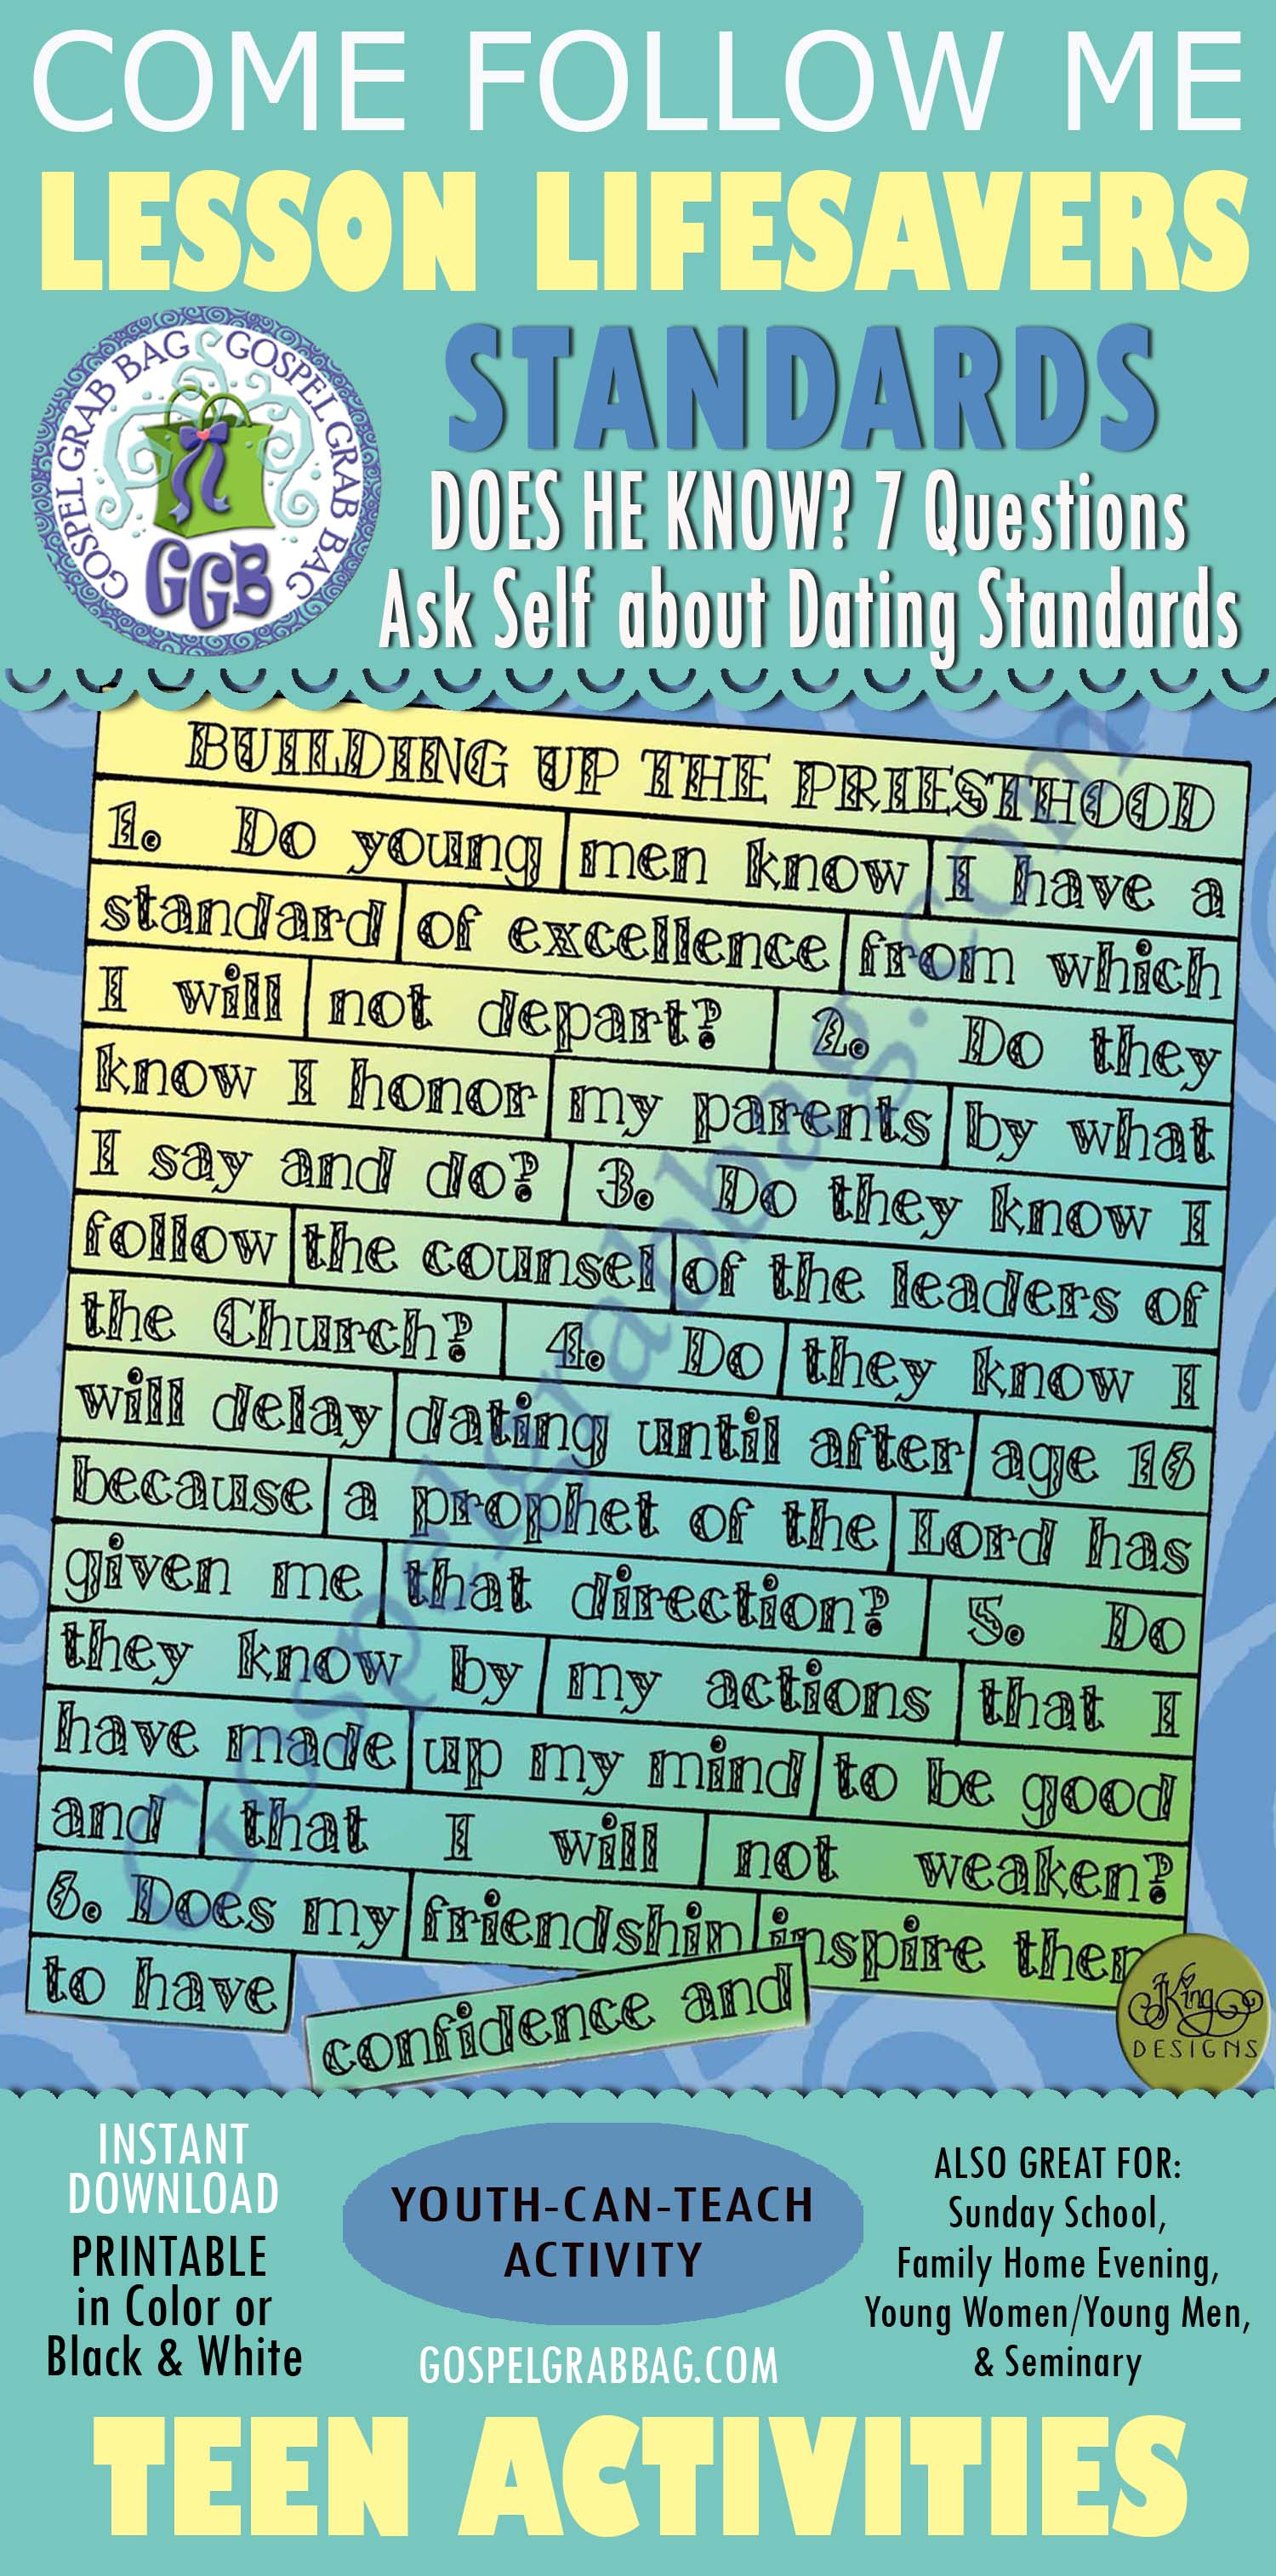 COME FOLLOW ME
LESSON LIFESAVERS
GOSPEL GRAB BAG GOSPEL GRAB BAG
GGB
STANDARDS
DOES HE KNOW? 7 Questions
Ask Self about Dating Standards
BUILDING UP THE PRIESTHOOD
1. Do young men know I have a
standard of excellence from which
I will not depart? 2. Do they
know I honor my parents by what
I say and do? 3. Do they know I
follow the counsel of the leaders of
the Church? 4. Do they know I
will delay dating until after age 16
because a prophet of the Lord has
given me that direction? 5. Do
they know by my actions that I
have made up my mind to be good
and that I will not weaken?
6. Does my friendship inspire them
to have
confidence and
Gospelgrabbag.com
King
DESIGNS
INSTANT
DOWNLOAD
PRINTABLE
in Color or
Black & White
YOUTH-CAN-TEACH
ACTIVITY
GOSPELGRABBAG.COM
ALSO GREAT FOR:
Sunday School,
Family Home Evening,
Young Women/Young Men,
& Seminary
TEEN ACTIVITIES